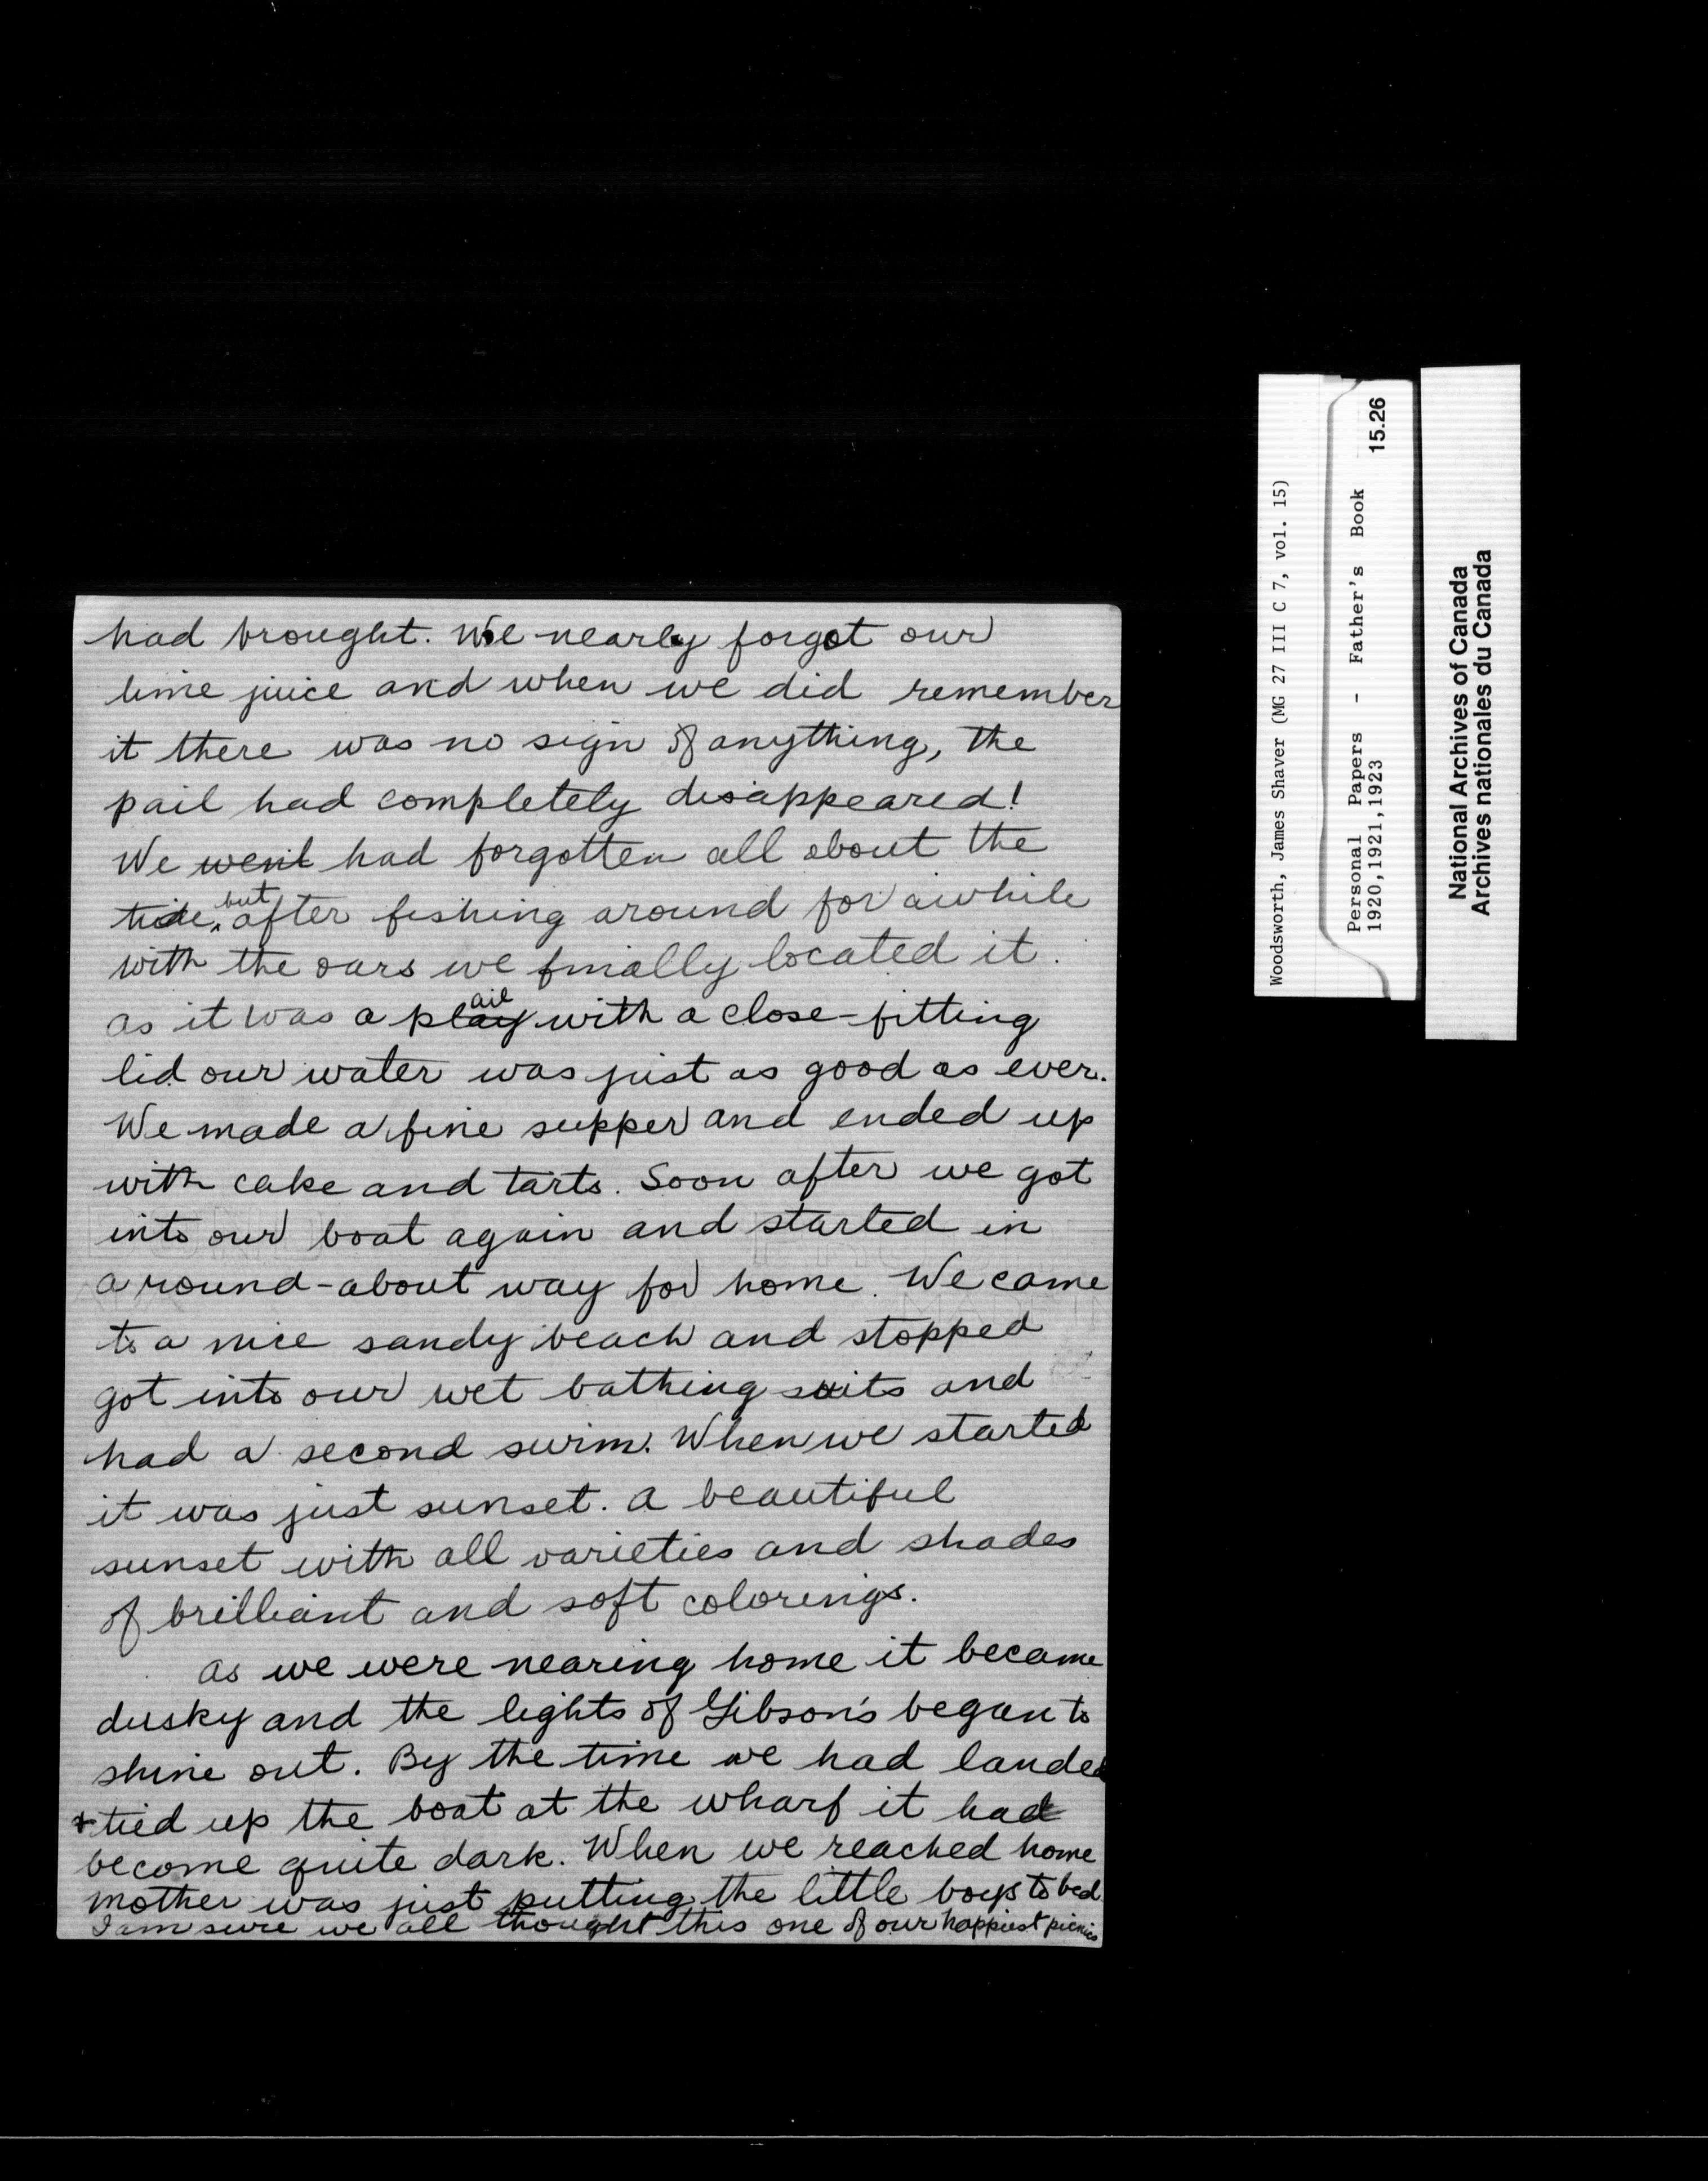 had brought. We nearly forgot our
lime juice and when we did remember
it there was no sign of anything, the
pail had completely disappeared!
We went had forgotten all about the
tide, but after fishing around for awhile
with the oars we finally located it.
as it was a play ail with a close-fitting
lid our water was just as good as ever.
We made a fine supper and ended up
with cake and tarts. Soon after we got
into our boat again and started in
a round-about way for home. We came
to a nice sandy beach and stopped
got into our wet bathing suits and
had a second swim. When we started
it was just sunset. a beautiful
sunset with all varieties and shades
of brilliant and soft colorings.
as we were nearing home it became
dusky and the lights of Gibson's began to
shine out. By the time we had landed
+ tied up the boat at the wharf it had
become quite dark. When we reached home
mother was just putting the little boys to bed.
I am sure we all thought this one of our happiest picnics
Woodsworth, James Shaver (MG 27 III C 7, vol. 15)
Personal Papers - Father's Book 15.26
1920,1921,1923
National Archives of Canada
Archives nationales du Canada